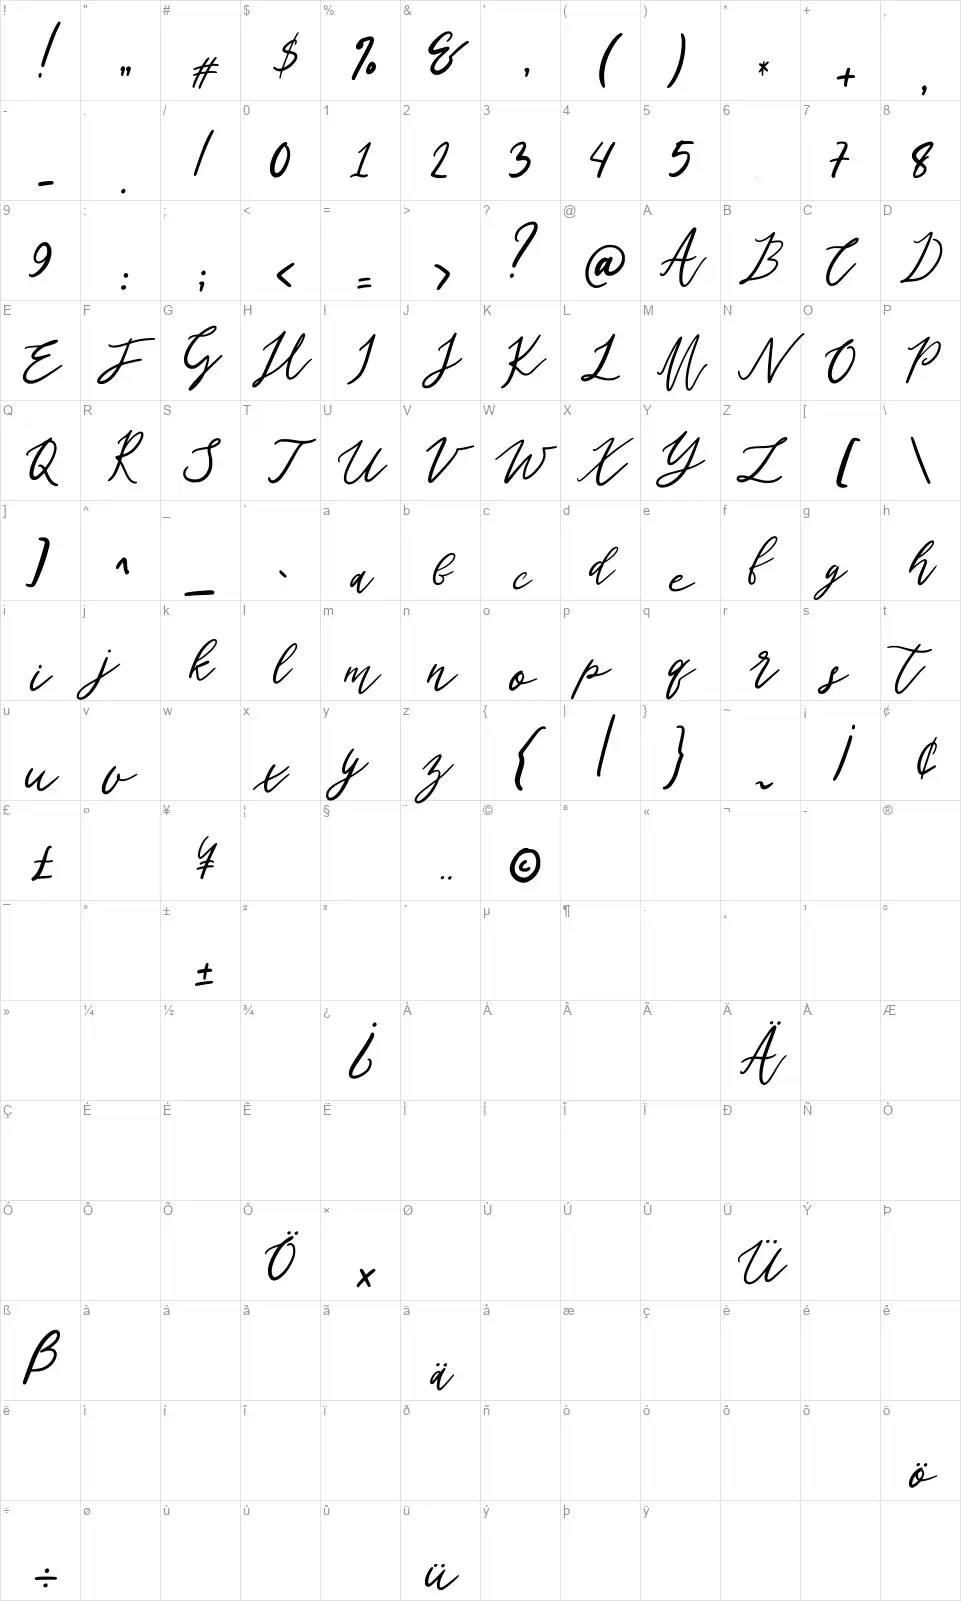 ! " # $ % & ' ( ) * + ,
! " # $ % & ' ( ) * + ,
- . / 0 1 2 3 4 5 6 7 8
- . / 0 1 2 3 4 5 7 8
9 : ; < = > ? @ A B C D
9 : ; < = > ? @ A B C D
E F G H I J K L M N O P
E F G H I J K L M N O P
Q R S T U V W X Y Z [ \
Q R S T U V W X Y Z [ \
] ^ _ ` a b c d e f g h
] ^ _ ` a b c d e f g h
i j k l m n o p q r s t
i j k l m n o p q r s t
u v w x y z { | } ~ ¡ ¢
u v x y z { | } ~ ¡ ¢
£ ¤ ¥ ¦ § ¨ © ª « ¬ - ®
£ ¥ ¨ ©
¯ ° ± ² ³ ´ µ ¶ · ¸ ¹ º
±
» ¼ ½ ¾ ¿ À Á Â Ã Ä Å Æ
¿ Ä
Ç È É Ê Ë Ì Í Î Ï Ð Ñ Ò
Ó Ô Õ Ö × Ø Ù Ú Û Ü Ý Þ
Ö × Ü
ß à á â ã ä å æ ç è é ê
ß ä
ë ì í î ï ð ñ ò ó ô õ ö
ö
÷ ø ù ú û ü ý þ ÿ
÷ ü